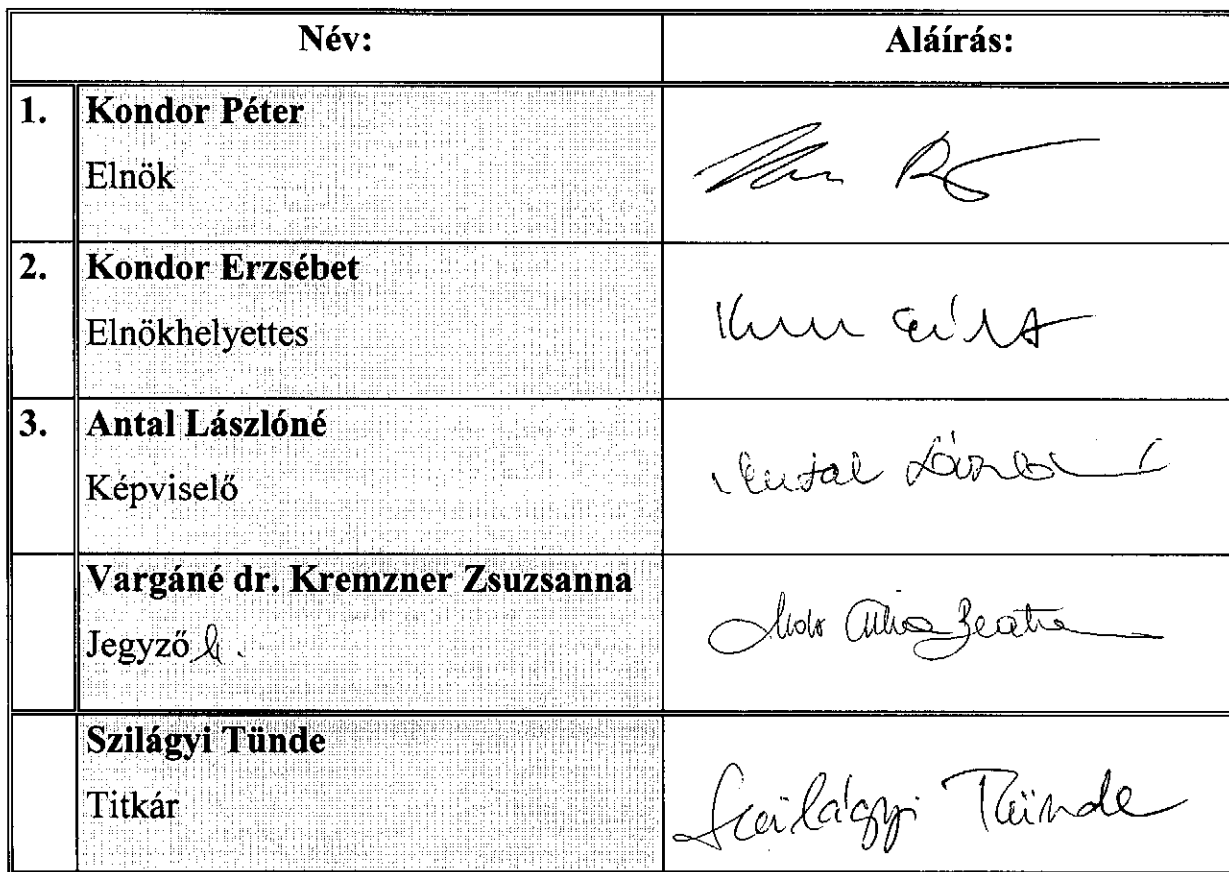 Név: Aláírás:
1. Kondor Péter
Elnök
2. Kondor Erzsébet
Elnökhelyettes
3. Antal Lászlóné
Képviselő
Antal
Vargáné dr. Kremzner Zsuzsanna
Jegyző h.
Szilágyi Tünde
Titkár
Szilágyi Tünde